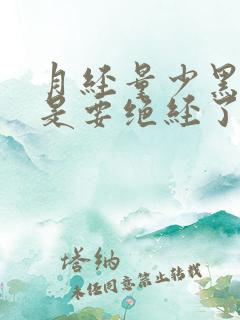 月经量少黑
是要绝经了
塔纳
未经同意禁止转载